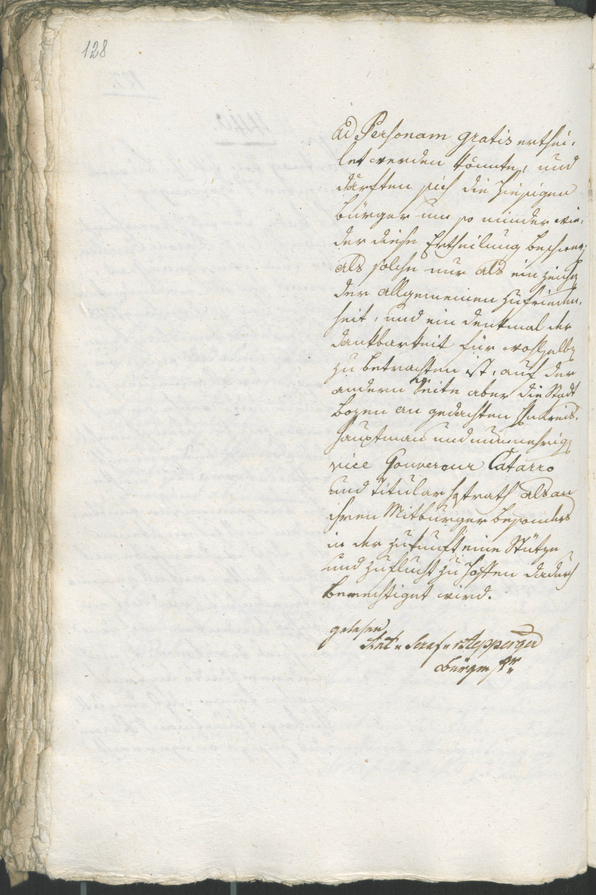 128
ad Personam gratis erthei-
let werden könnte, und
därften sich die hiesigen
bürger um so minder wi-
der diese Ertheilung beschwer
als solche nur als ein Zeich
der allgemeinen Zufrieden-
heit, und ein denkmal der
dankbarkeit für wohlselbe
zu betrachten ist, auf der
andern Seite aber die Stadt
bozen an gedachten Hn kreis-
hauptman und nunmehrig
vice Gouverour Cataro
und titular Hofrath als an
ihren Mitbürger besonders
in der zukunft eine Stütze
und zuflucht zu hoffen dadurch
berechtiget wird.
gelesen
bürgm